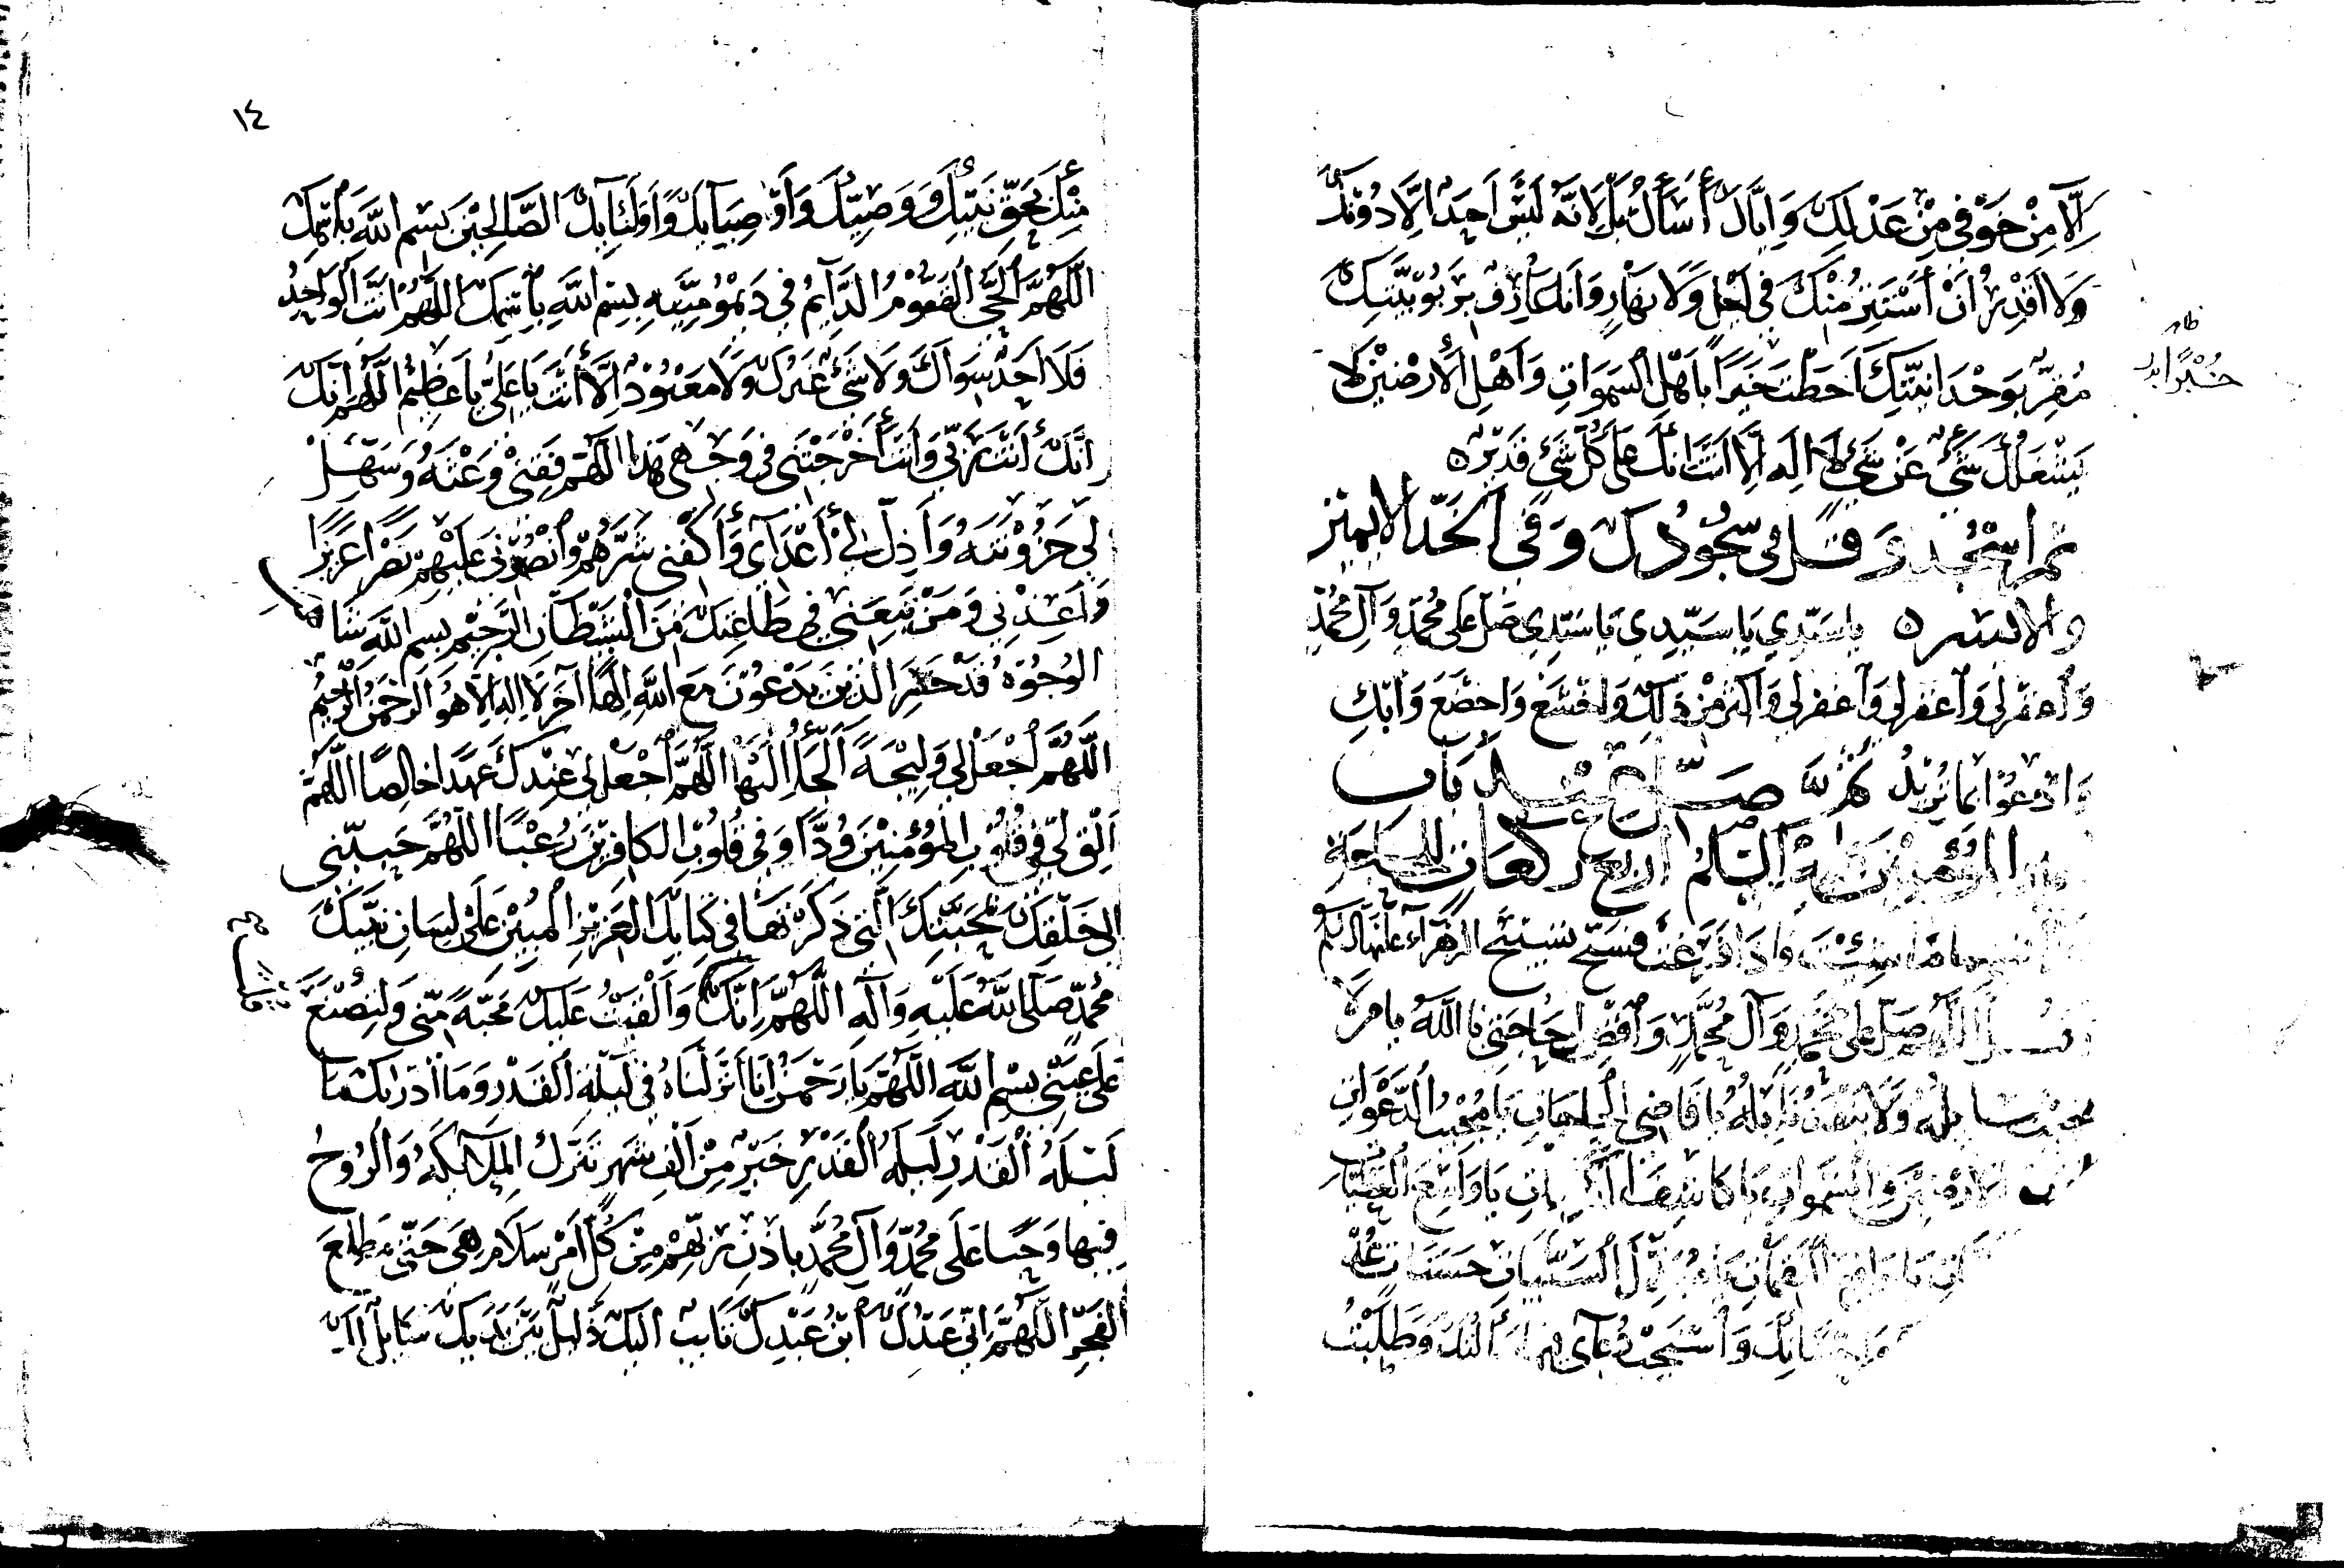 إلا من خوفي من عدلك وإياك أسأل بك لأنه ليس أحد إلا دونك
ولا أقدر أن أستتر منك في ليل ولا نهار وأنا عارف بربوبيتك
مقر بوحدانيتك أحطت خبرا بأهل السموات وأهل الأرضين لا
يشغلك شيء عن شيء لا إله إلا أنت إنك على كل شيء قدير ه
ثم اسجد وقل في سجودك وفي الخد الأيمن
والأيسر ه يا سيدي يا سيدي يا سيدي صل على محمد وآل محمد
واغفر لي واغفر لي واغفر لي وأكثر من ذلك واخشع واخضع وابك
وادعوا بما تريد ثم صل عند باب
أمير المؤمنين عليه السلم أربع ركعات للحاجة
ما شئت وإذا فرغت فسبح تسبيح الزهراء عليها السلم
وقل اللهم صل على محمد وآل محمد واقض حاجتي يا الله يا من لا
يخيب سائله ولا ينفد نائله يا قاضي الحاجات يا مجيب الدعوات
يا رب الأرضين والسموات يا كاشف الكربات يا واسع العطيات
يا دافع النقمات يا مبدل السيئات حسنات عد
واستجب دعائي فيما سألتك وطلبت
خبرا
١٤
منك بحق نبيك ووصيك وأوصيائك وأوليائك الصالحين بسم الله باسمك
اللهم الحي القيوم الدايم في ديموميته بسم الله باسمك اللهم أنت الواحد
فلا أحد سواك ولا شيء غيرك ولا معبود إلا أنت يا علي يا عظيم اللهم إنك
إنك أنت ربي وأنت أخرجتني في وجهي هذا اللهم فقني وعثه وسهل
لي حزونته وأذل لي أعدائي وأكفني شرهم وانصرني عليهم نصرا عزيزا
وأعذني ومن تبعني في طاعتك من الشيطان الرجيم بسم الله شاهت
الوجوه قد خسر الذين يدعون مع الله إلها آخر لا إله إلا هو الرحمن الرحيم
اللهم اجعل لي وليجة ألجأ إليها اللهم اجعل لي عندك عهدا خالصا اللهم
ألق لي في قلوب المؤمنين ودا وفي قلوب الكافرين رعبا اللهم حببني
إلى خلقك بمحبتك التي ذكرتها في كتابك العزيز المبين على لسان نبيك
محمد صلى الله عليه وآله اللهم إنك وألقيت عليك محبة مني ولتصنع
على عيني بسم الله اللهم يا رحمن إنا أنزلناه في ليلة القدر وما أدراك ما
ليلة القدر ليلة القدر خير من ألف شهر تنزل الملائكة والروح
فيها وحيا على محمد وآل محمد بإذن ربهم من كل أمر سلام هي حتى مطلع
الفجر اللهم إني عبدك ابن عبدك تايب إليك ذليل بين يديك سايل